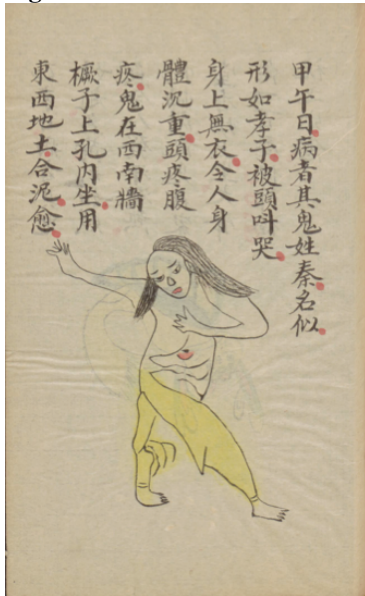 甲午日病者其鬼姓秦名似
形如孝子被頭呌哭
身上無衣令人身
體沉重頭疼腹
疼鬼在西南牆
橛子上孔内坐用
東西地土合泥愈